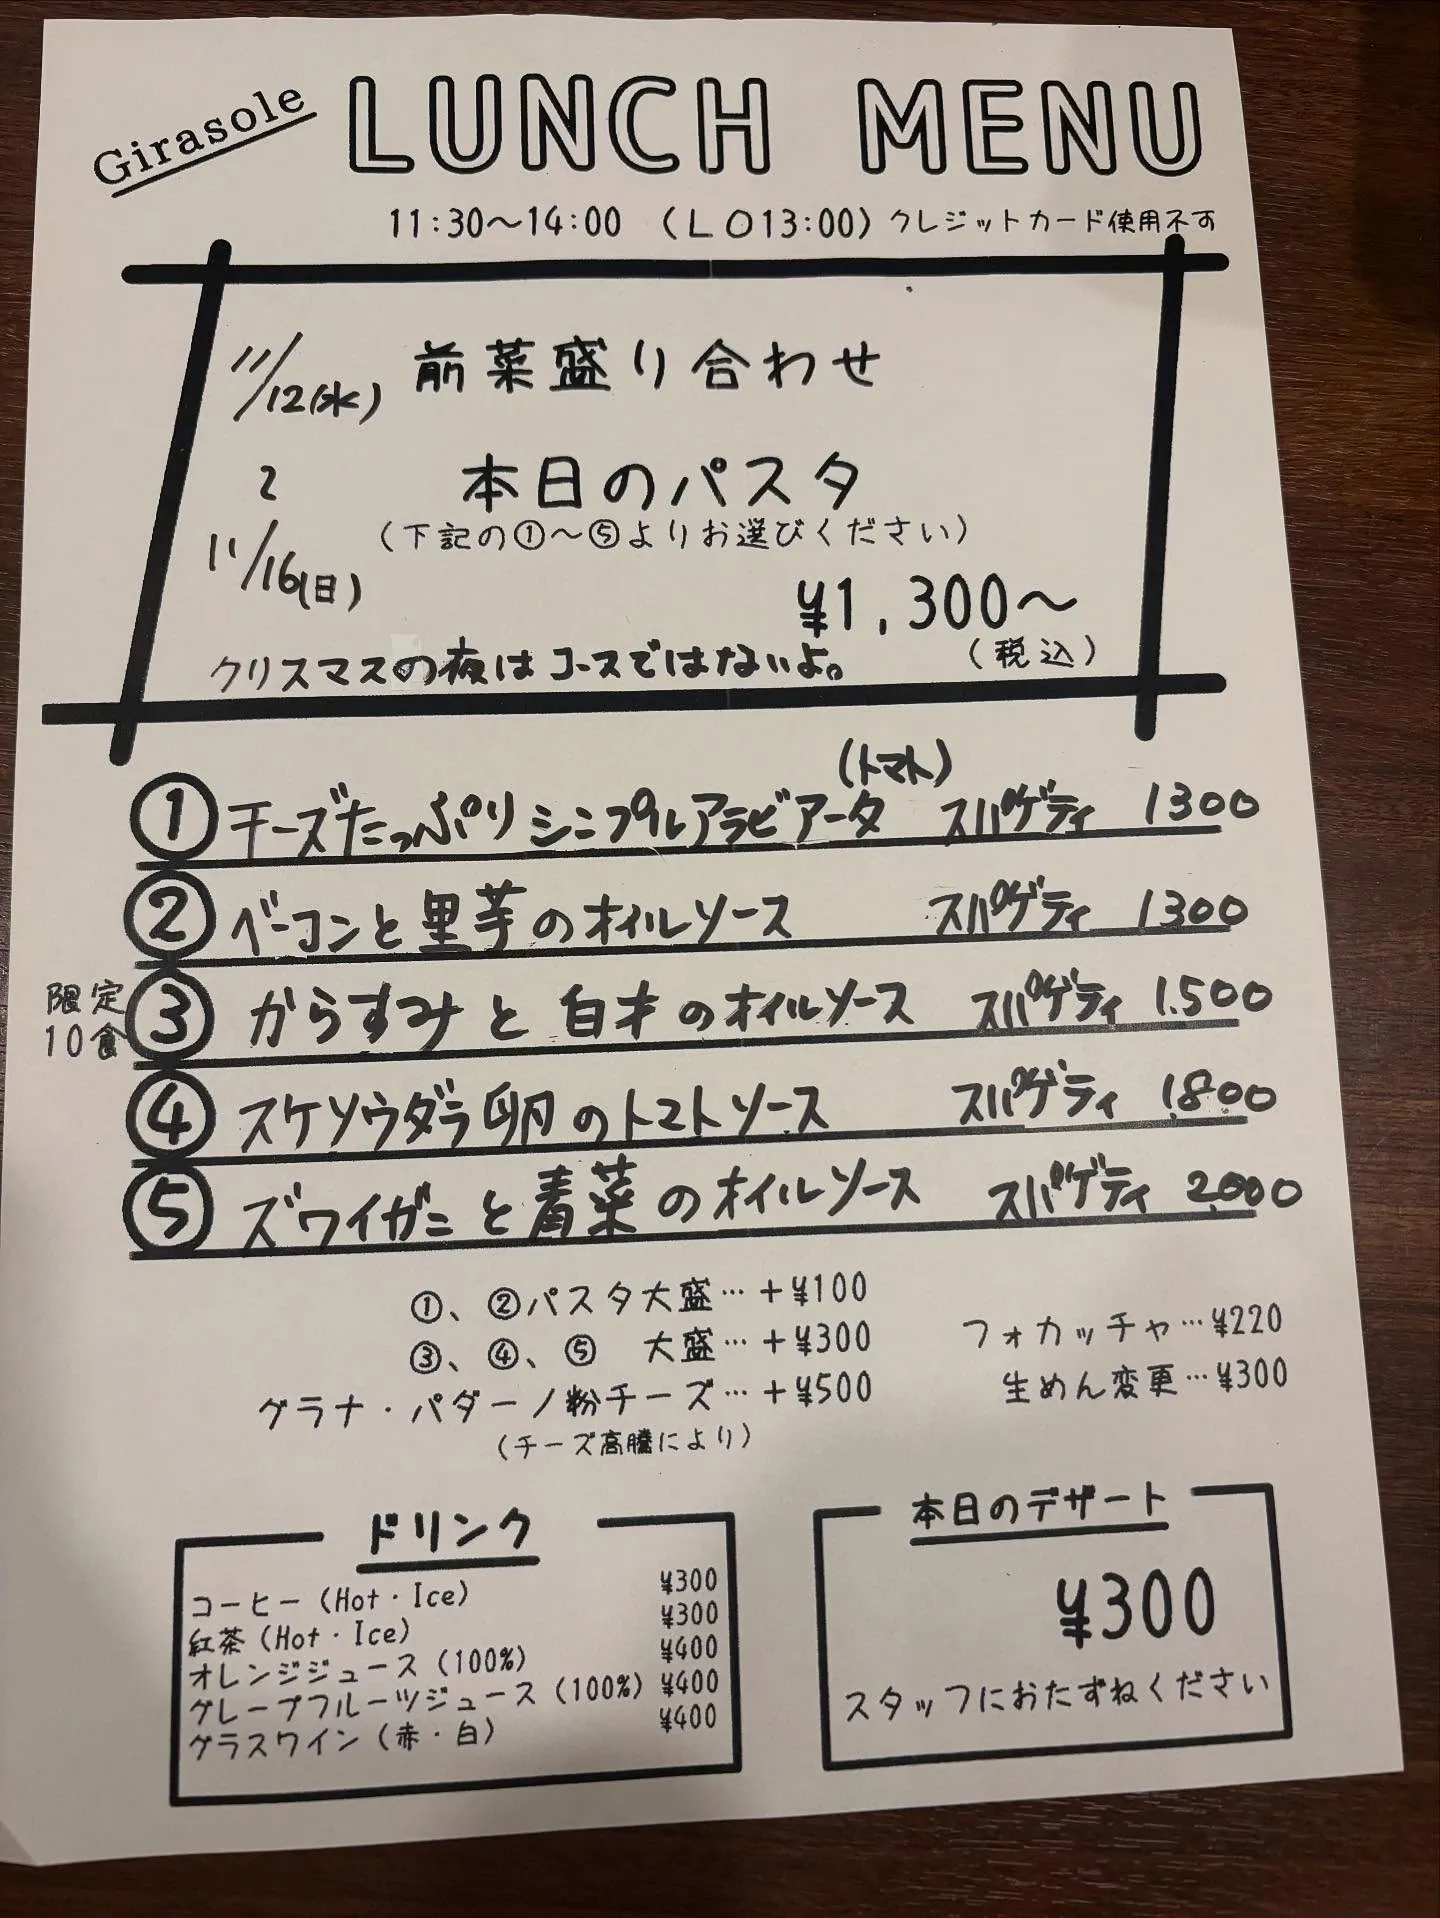 Girasole
LUNCH MENU
11:30〜14:00 （LO13:00）クレジットカード使用不可
11/12(水)
前菜盛り合わせ
2
本日のパスタ
（下記の①〜⑤よりお選びください）
11/16(日)
¥1,300〜
（税込）
クリスマスの夜はコースではないよ。
（トマト）
① チーズたっぷりシンプルアラビアータ スパゲティ 1300
② ベーコンと里芋のオイルソース スパゲティ 1300
限定10食 ③ からすみと白才のオイルソース スパゲティ 1.500
④ スケソウダラ卵のトマトソース スパゲティ 1.800
⑤ ズワイガニと青菜のオイルソース スパゲティ 2.000
①、②パスタ大盛…+¥100
③、④、⑤ 大盛…+¥300
グラナ・パダーノ粉チーズ…+¥500
（チーズ高騰により）
フォカッチャ…¥220
生めん変更…¥300
ドリンク
コーヒー（Hot・Ice） ¥300
紅茶（Hot・Ice） ¥300
オレンジジュース（100%） ¥400
グレープフルーツジュース（100%） ¥400
グラスワイン（赤・白） ¥400
本日のデザート
¥300
スタッフにおたずねください